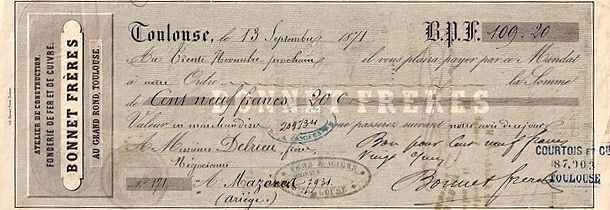 ATELIER DE CONSTRUCTION,
FONDERIE DE FER ET DE CUIVRE.
BONNET FRÈRES
AU GRAND ROND, TOULOUSE
Toulouse, le 13 Septembre 1871 B.P.F. 109.20
Au trente Novembre prochain il vous plaira payer par ce Mandat
à notre Ordre la Somme
de Cent neuf francs 20 c
BONNET FRÈRES
Valeur en marchandises que passerez suivant notre avis de ce jour
209534
A Messieurs Delrieu Bon pour Cent neuf francs
Négociants vingt
No 171 A Mazères 7931 Bonnet frères
(Ariège)
TOULOUSE
COURTOIS et Cie
87,903
TOULOUSE